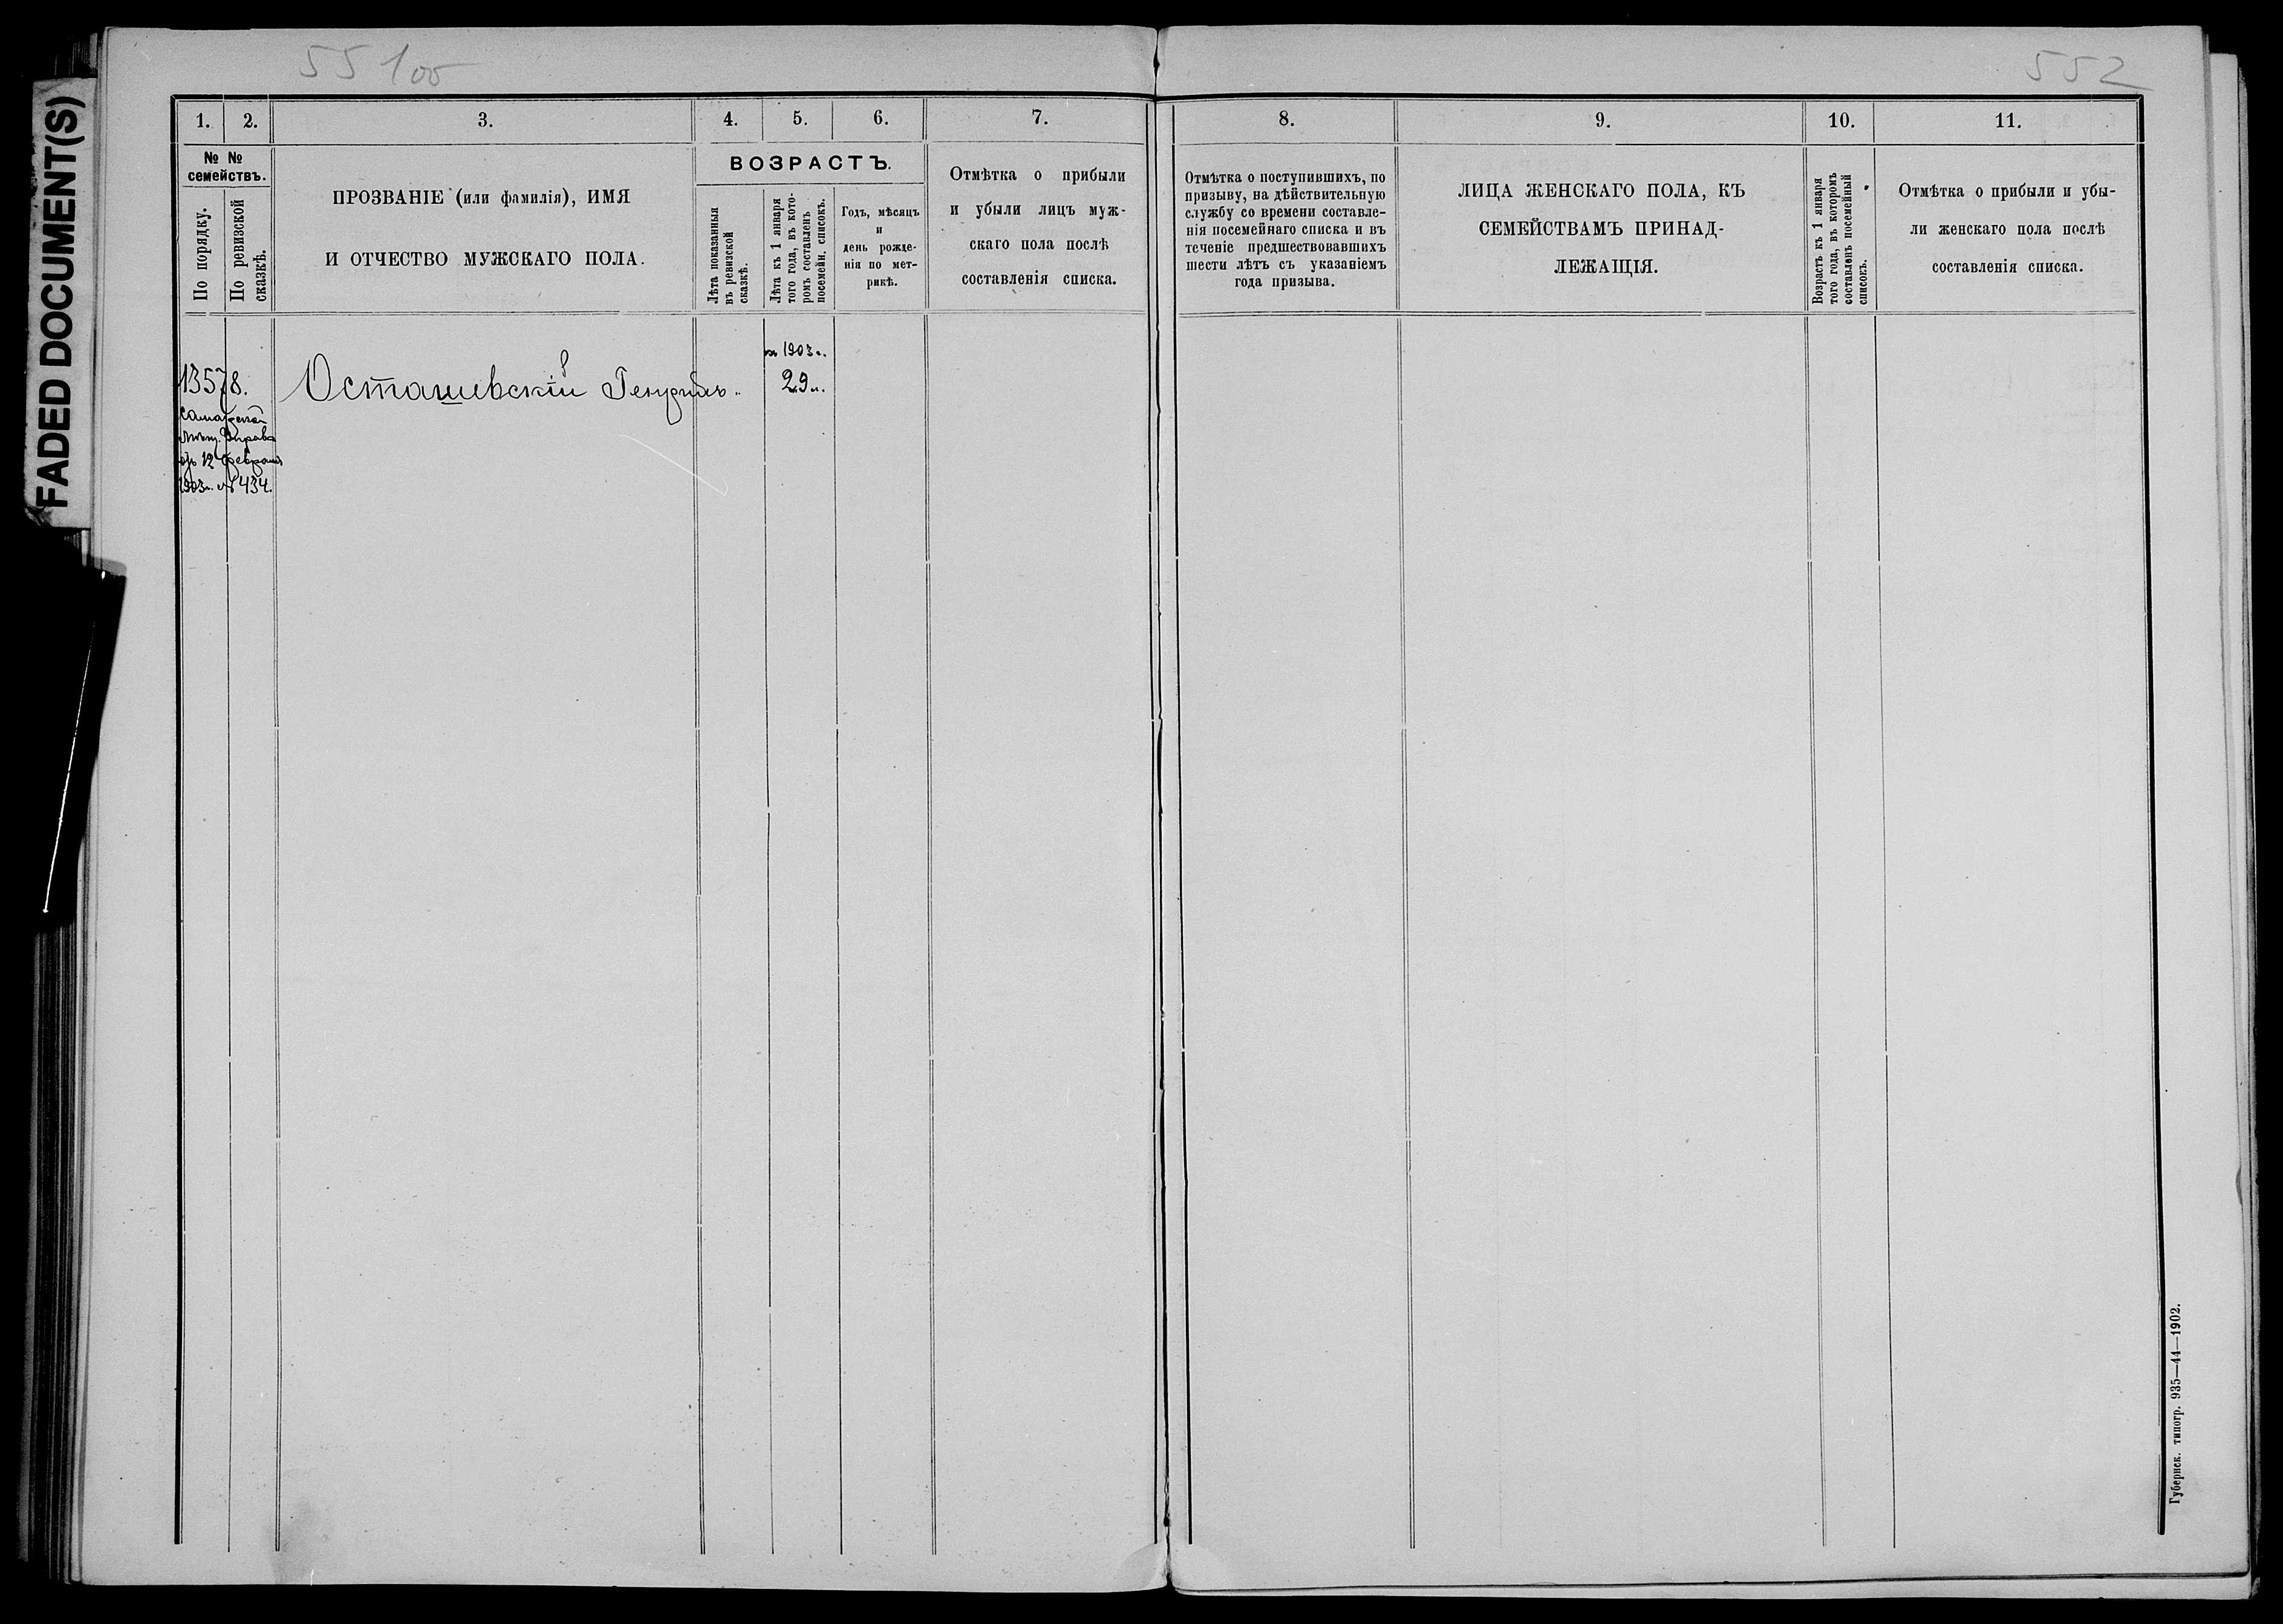 FADED DOCUMENT(S)
55100
552
1. 2. 3. 4. 5. 6. 7. 8. 9. 10. 11.
№ №
семействъ.
По порядку.
По ревизской
сказкѣ.
ПРОЗВАНІЕ (или фамилія), ИМЯ
И ОТЧЕСТВО МУЖСКАГО ПОЛА.
ВОЗРАСТЪ.
Лѣта показанныя
въ ревизской
сказкѣ.
Лѣта къ 1 января
того года, въ кото-
ромъ составленъ
посемейн. списокъ.
Годъ, мѣсяцъ
и
день рожде-
нія по мет-
рикѣ.
Отмѣтка о прибыли
и убыли лицъ муж-
скаго пола послѣ
составленія списка.
Отмѣтка о поступившихъ, по
призыву, на дѣйствительную
службу со времени составле-
нія посемейнаго списка и въ
теченіе предшествовавшихъ
шести лѣтъ съ указаніемъ
года призыва.
ЛИЦА ЖЕНСКАГО ПОЛА, КЪ
СЕМЕЙСТВАМЪ ПРИНАД-
ЛЕЖАЩІЯ.
Возрастъ къ 1 января
того года, въ которомъ
составленъ посемейный
списокъ.
Отмѣтка о прибыли и убы-
ли женскаго пола послѣ
составленія списка.
13578.
Самарской
мѣщ. Управ
отъ 12 февраля
1903 г. № 434.
Осташевскій Генрихъ.
1903 г.
29 л.
Губернск. типогр. 935—44—1902.